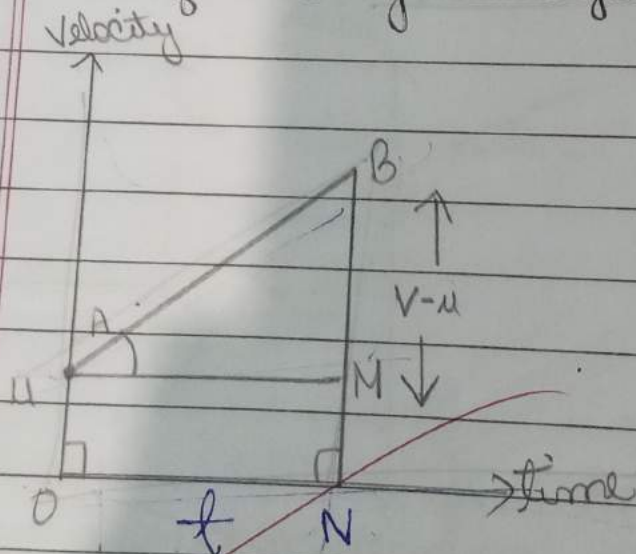 Velocity
B
V-u
A
u
M
O
t
N
time